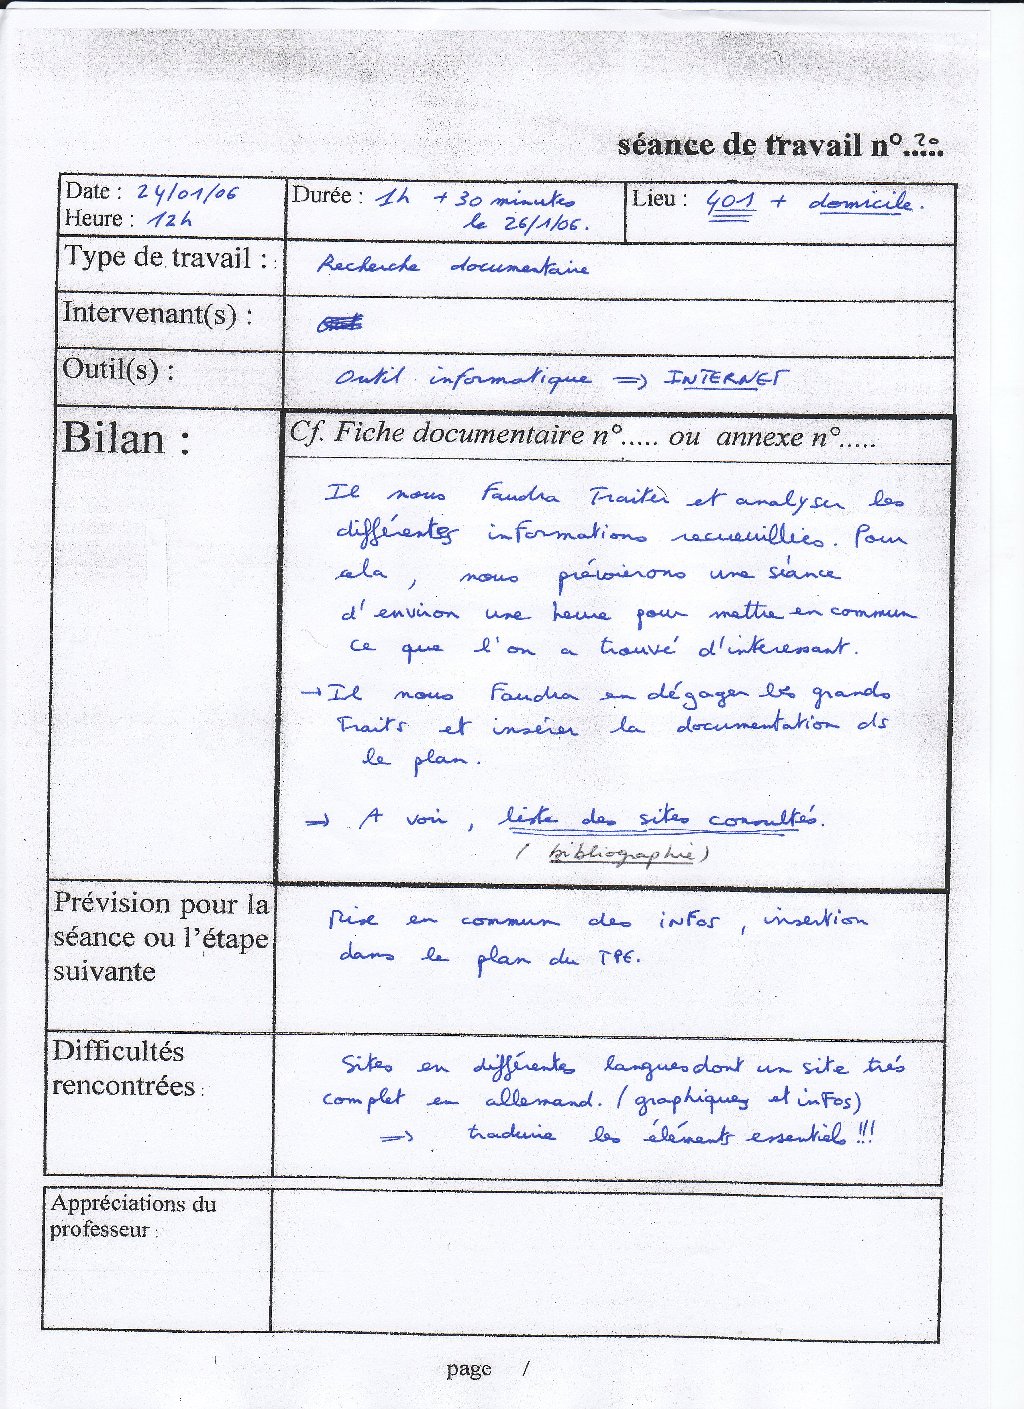 séance de travail n°.....
Date : 24/01/06
Heure : 12h
Durée : 1h + 30 minutes
le 26/1/06.
Lieu : 401 + domicile.
Type de travail :
Recherche documentaire
Intervenant(s) :
Outil(s) :
Outil informatique => INTERNET
Bilan :
Cf. Fiche documentaire n°..... ou annexe n°.....
Il nous Faudra Traiter et analyser les
différentes informations recueuillies. Pour
cela, nous prévoierons une séance
d'environ une heure pour mettre en commun
ce que l'on a trouvé d'interessant.
→ Il nous Faudra en dégager les grands
Traits et insérer la documentation ds
le plan.
=> A voir, liste des sites consultés.
(bibliographie)
Prévision pour la
séance ou l'étape
suivante
Mise en commun des inFos, insertion
dans le plan du TPE.
Difficultés
rencontrées :
Sites en différentes langues dont un site trés
complet en allemand. (graphiques et inFos)
=> traduire les éléments essentiels !!!
Appréciations du
professeur :
page /